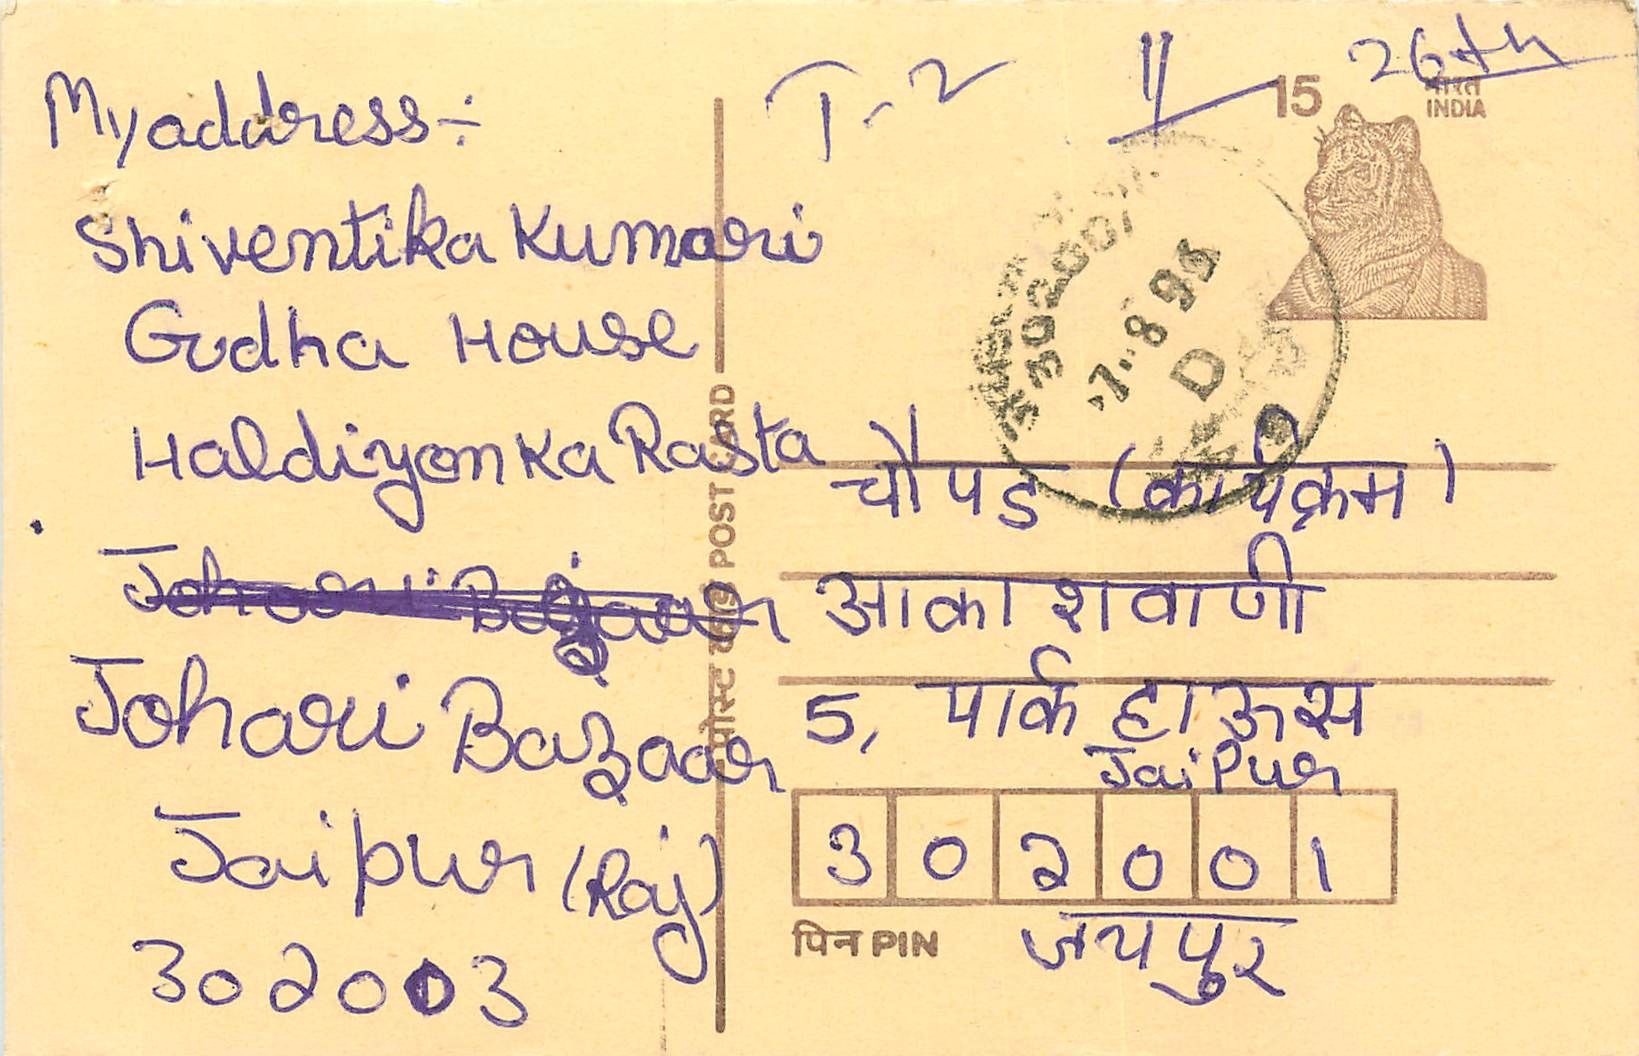 My address :-
Shiventika Kumari
Gudha House
Haldiyon Ka Rasta
Johari Bazaar
Johari Bazaar
Jaipur (Raj)
302003
पोस्ट कार्ड POST CARD
T-2
11
26th
15
भारत
INDIA
302001
7.8.95
D
चौपड (कार्यक्रम)
आकाशवाणी
5, पार्क हाऊस
Jaipur
302001
पिन PIN
जयपुर